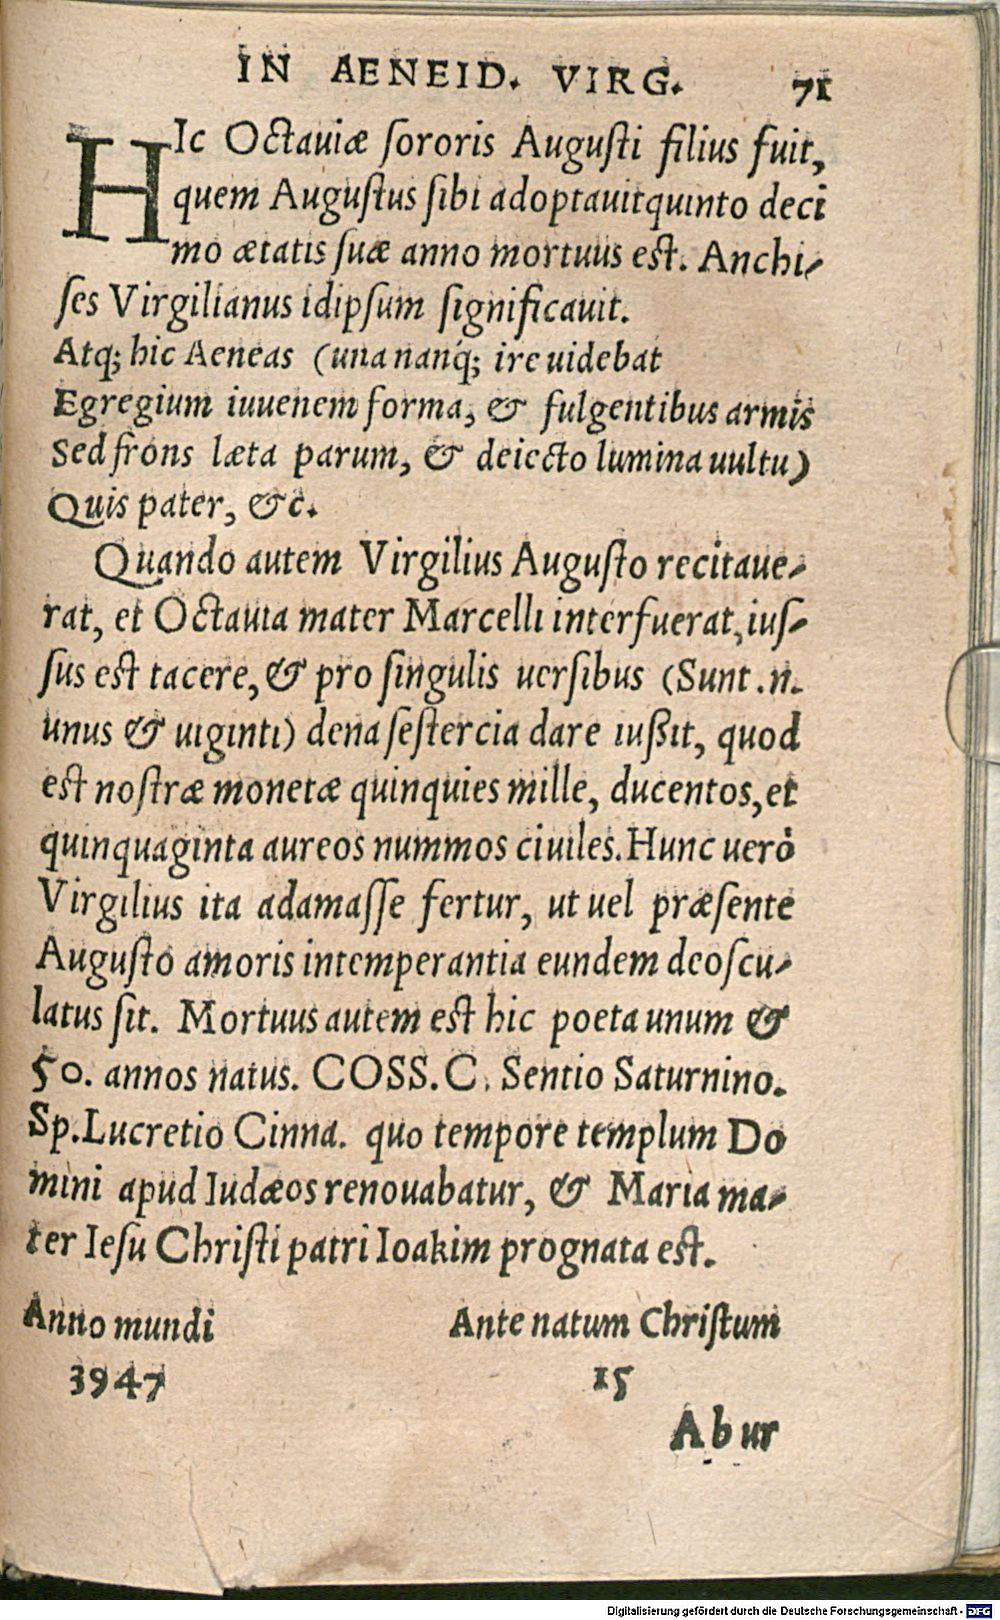 IN AENEID. VIRG. 71
HIc Octauiæ ſororis Auguſti filius fuit,
quem Auguſtus ſibi adoptauit quinto deci
mo ætatis ſuæ anno mortuus est. Anchi-
ſes Virgilianus idipſum ſignificauit.
Atq; hic Aeneas (una nanq́; ire uidebat
Egregium iuuenem forma, & fulgentibus armis
Sed frons læta parum, & deiecto lumina uultu)
Quis pater, &c.
Quando autem Virgilius Auguſto recitaue-
rat, et Octauia mater Marcelli interfuerat, iuſ-
ſus est tacere, & pro ſingulis uerſibus (Sunt .n.
unus & uiginti) dena ſeſtercia dare iußit, quod
est noſtræ monetæ quinquies mille, ducentos, et
quinquaginta aureos nummos ciuiles. Hunc uerò
Virgilius ita adamaſſe fertur, ut uel præſente
Auguſto amoris intemperantia eundem deoſcu-
latus ſit. Mortuus autem est hic poeta unum &
50. annos natus. COSS. C. Sentio Saturnino.
Sp. Lucretio Cinna. quo tempore templum Do
mini apud Iudæos renouabatur, & Maria ma-
ter Ieſu Chriſti patri Ioakim prognata est.
Anno mundi Ante natum Chriſtum
3947 15
Abur
Digitalisierung gefördert durch die Deutsche Forschungsgemeinschaft - DFG